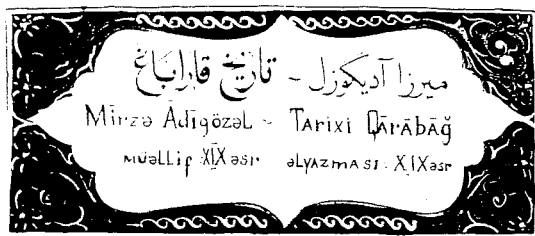 میرزا آدیگوزل - تاریخ قاراباغ
Mirzə Adıgözəl - Tarixi Qārābāğ
müəllif XIX əsr əlyazması: XIX əsr